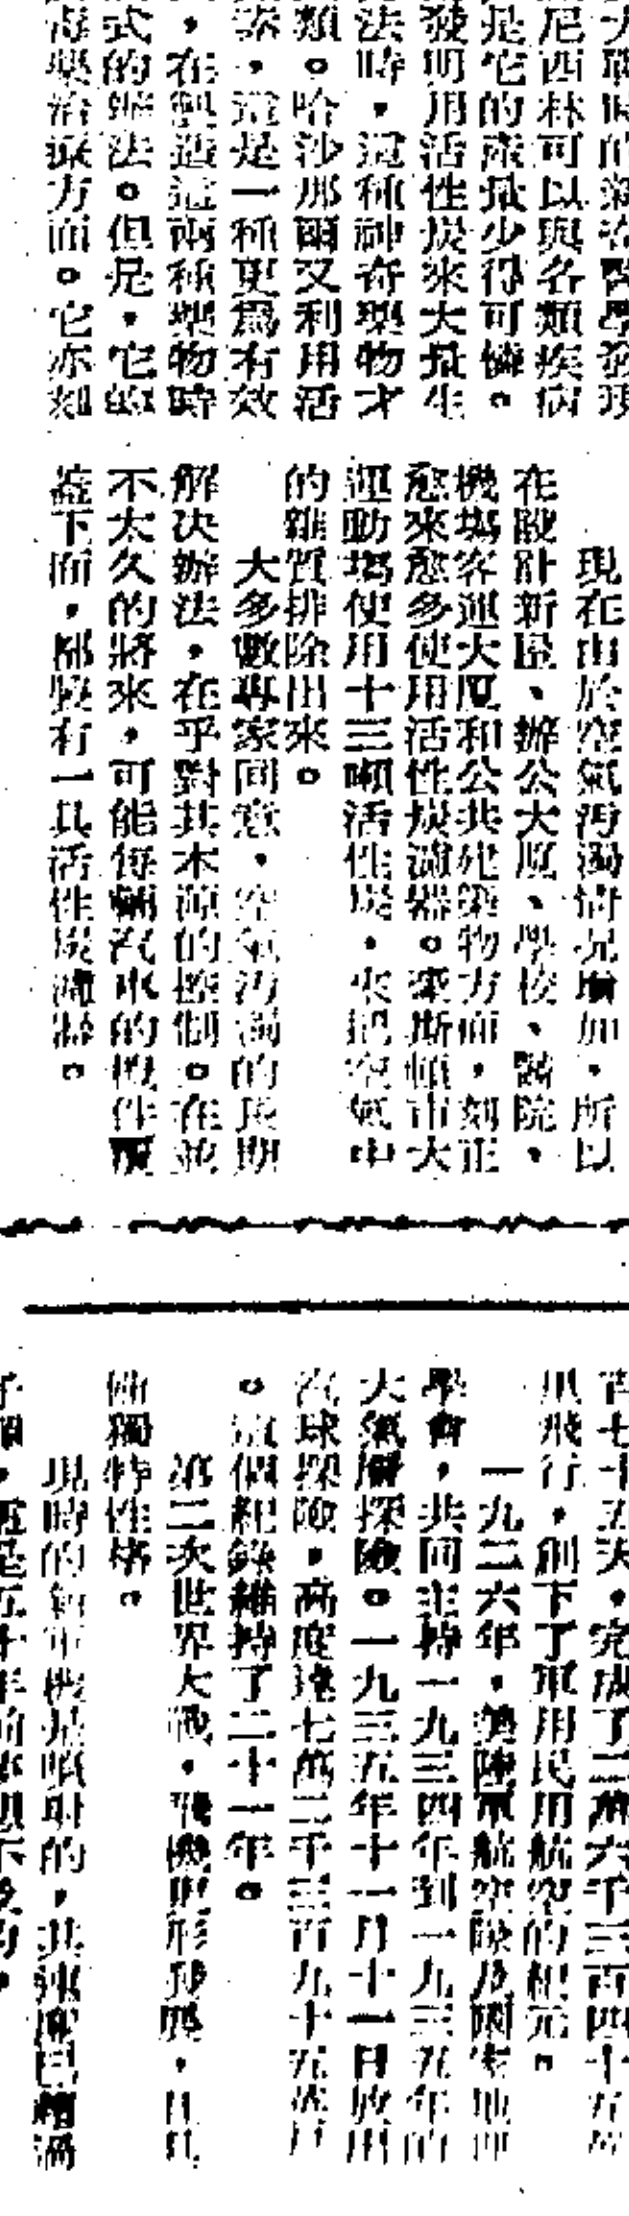 大戰時的
尼西林可以與各類疾病
是它的產量少得可憐。
發明用活性炭來大量生
法時，這種神奇藥物才
類。哈沙那爾又利用活
素，這是一種更為有效
，在製造這兩種藥物時
式的辦法。但是，它的
毒藥治療方面。它亦刻
現在由於空氣污濁情況增加，所以
在設計新屋、辦公大廈、學校、醫院、
機場客運大厦和公共建築物方面，刻正
愈來愈多使用活性炭濾器。豪斯頓市大
運動場使用十三噸活性炭，來把空氣中
的雜質排除出來。
大多數專家同意，空氣污濁的長期
解決辦法，在乎對其本源的控制。在並
不太久的將來，可能每輛汽車的機件覆
蓋下面，都裝有一具活性炭濾器。
百七十五天，完成了二萬六千三百四十五
里飛行，創下了軍用民用航空的紀元。
一九二六年，美陸軍航空隊及國家地理
學會，共同主持一九三四年到一九三五年的
大氣層探險。一九三五年十一月十一日放出
汽球探險，高度達七萬二千三百九十五
。這個紀錄維持了二十一年。
第二次世界大戰，飛機更形發展，且具
備獨特性格。
現時的新軍機是噴射的，其速度已超過
，這是五十年前夢想不及的，